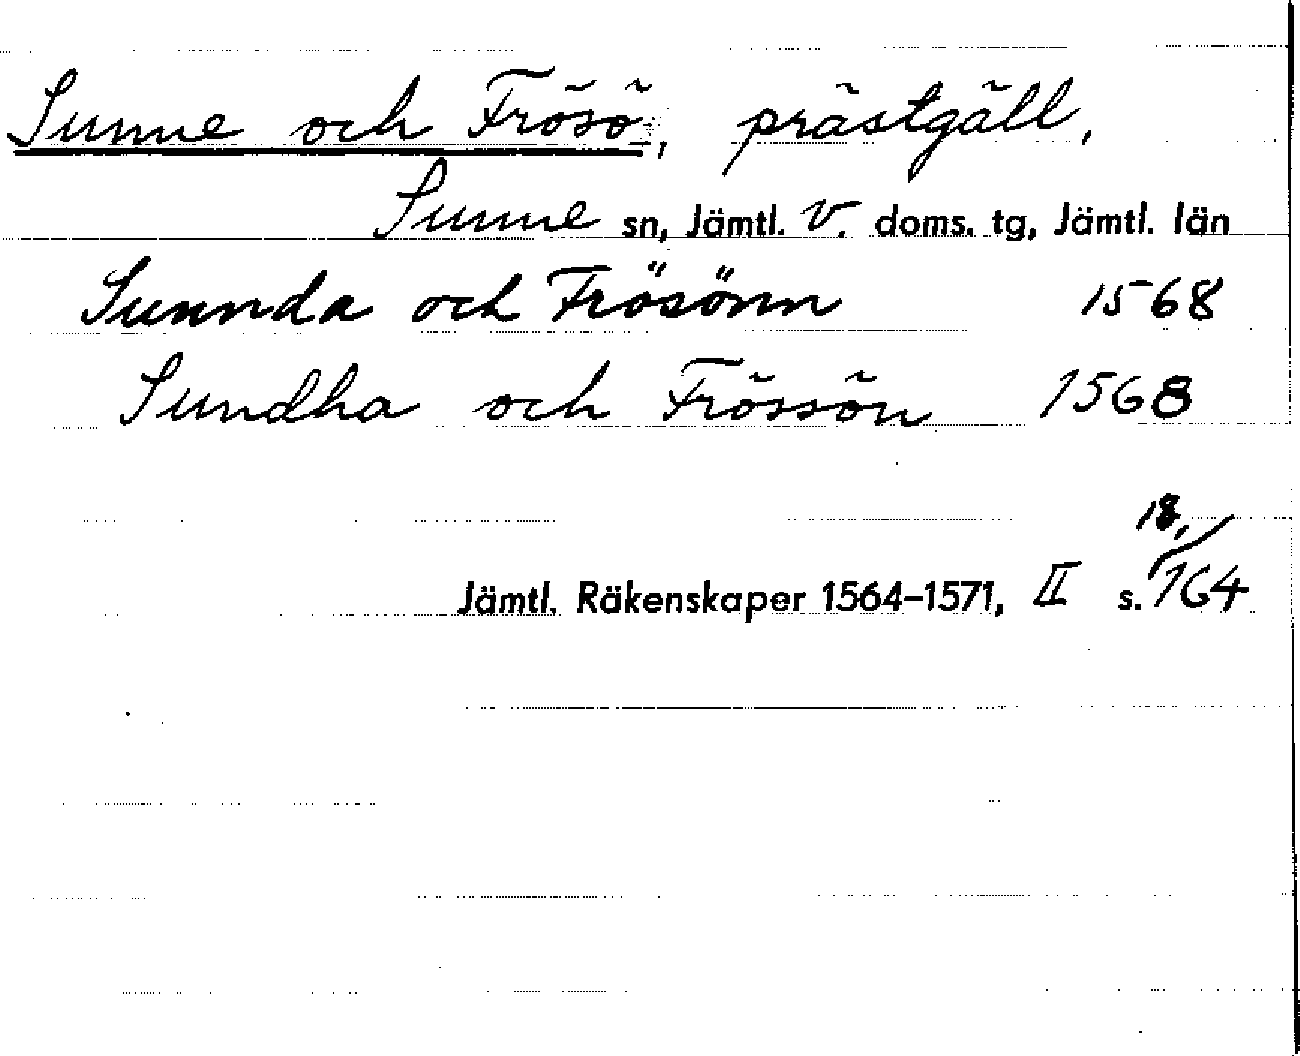 Sunne och Frösö, prästgäll,
Sunne sn, Jämtl. v. doms. tg, Jämtl. län
Sunnda och Frösönn 1568
Sundha och Frössön 1568
18,
Jämtl. Räkenskaper 1564-1571, II s. 164